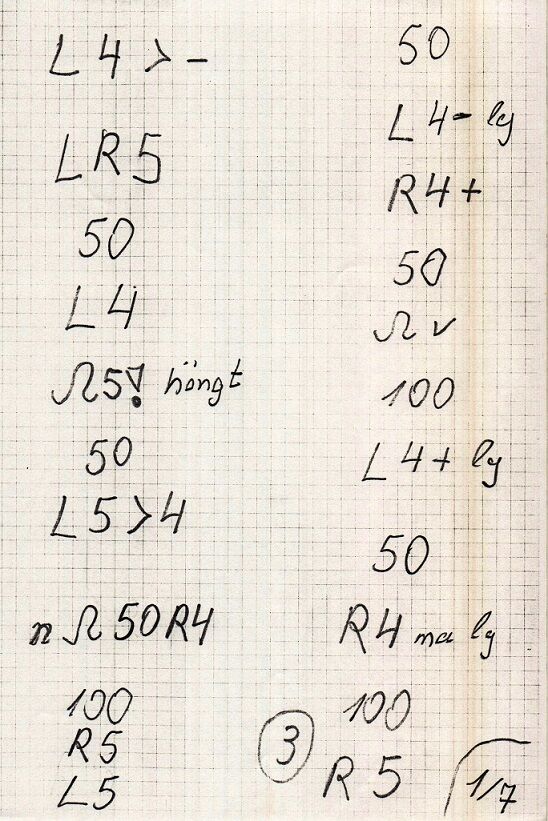 L 4 > -
LR5
50
L4
Ω5! hängt
50
L 5 > 4
n Ω 50 R4
100
R5
L5
50
L 4 - lg
R4+
50
Ω v
100
L 4+ lg
50
R4 ma lg
100
3
R 5
1/7